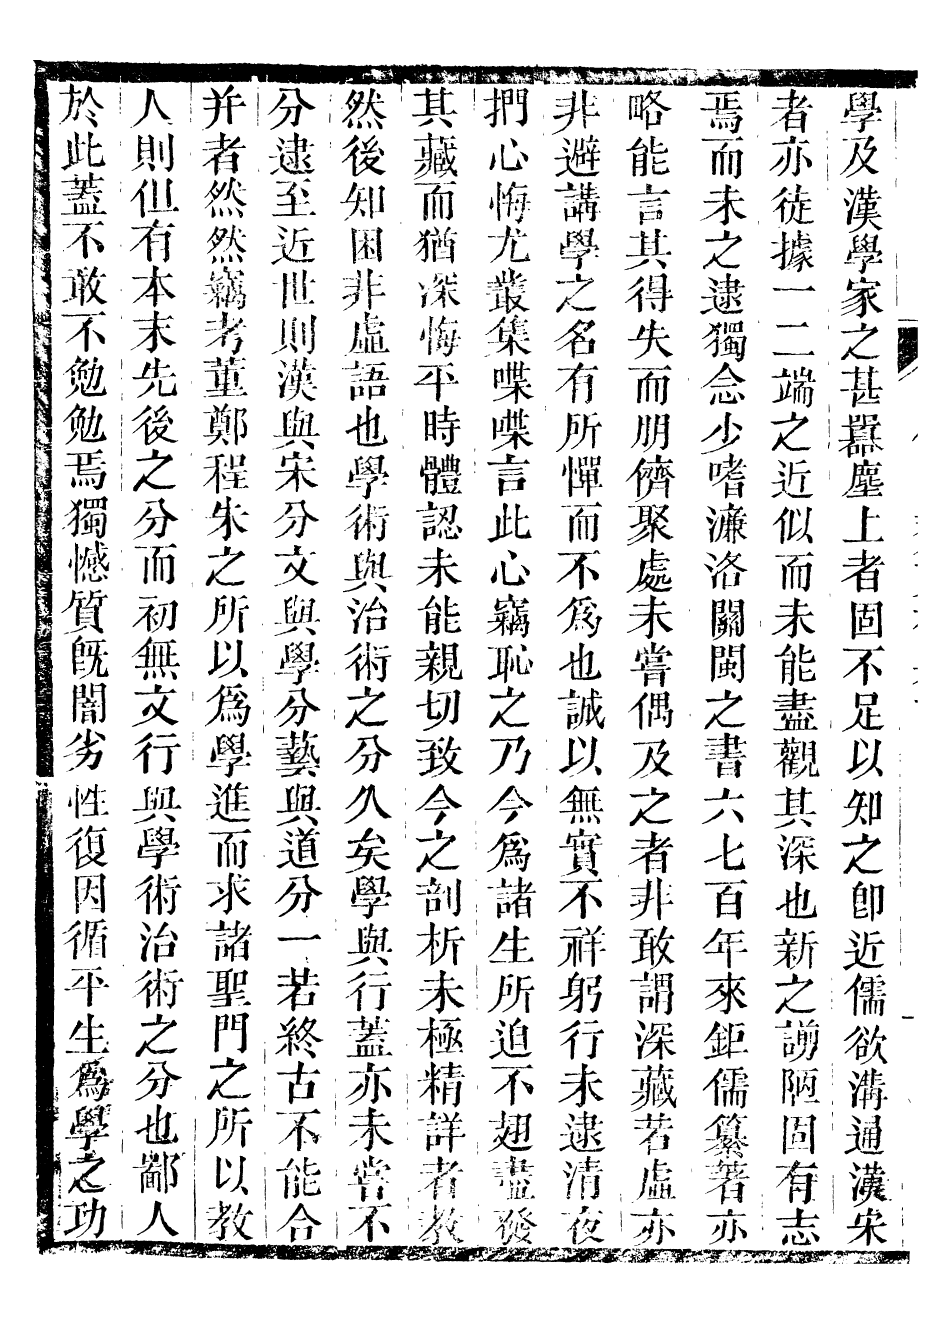 學及漢學家之甚囂塵上者固不足以知之卽近儒欲溝通漢宋
者亦徒據一二端之近似而未能盡觀其深也新之謭陋固有志
焉而未之逮獨念少嗜濂洛關閩之書六七百年來鉅儒纂著亦
略能言其得失而朋儕聚處未嘗偶及之者非敢謂深藏若虛亦
非避講學之名有所憚而不爲也誠以無實不祥躬行未逮清夜
捫心悔尤叢集喋喋言此心竊恥之乃今爲諸生所迫不翅盡發
其藏而猶深悔平時體認未能親切致今之剖析未極精詳者教
然後知困非虛語也學術與治術之分久矣學與行蓋亦未嘗不
分逮至近世則漢與宋分文與學分藝與道分一若終古不能合
并者然然竊考董鄭程朱之所以爲學進而求諸聖門之所以教
人則但有本末先後之分而初無文行與學術治術之分也鄙人
於此蓋不敢不勉勉焉獨憾質旣闇劣性復因循平生爲學之功